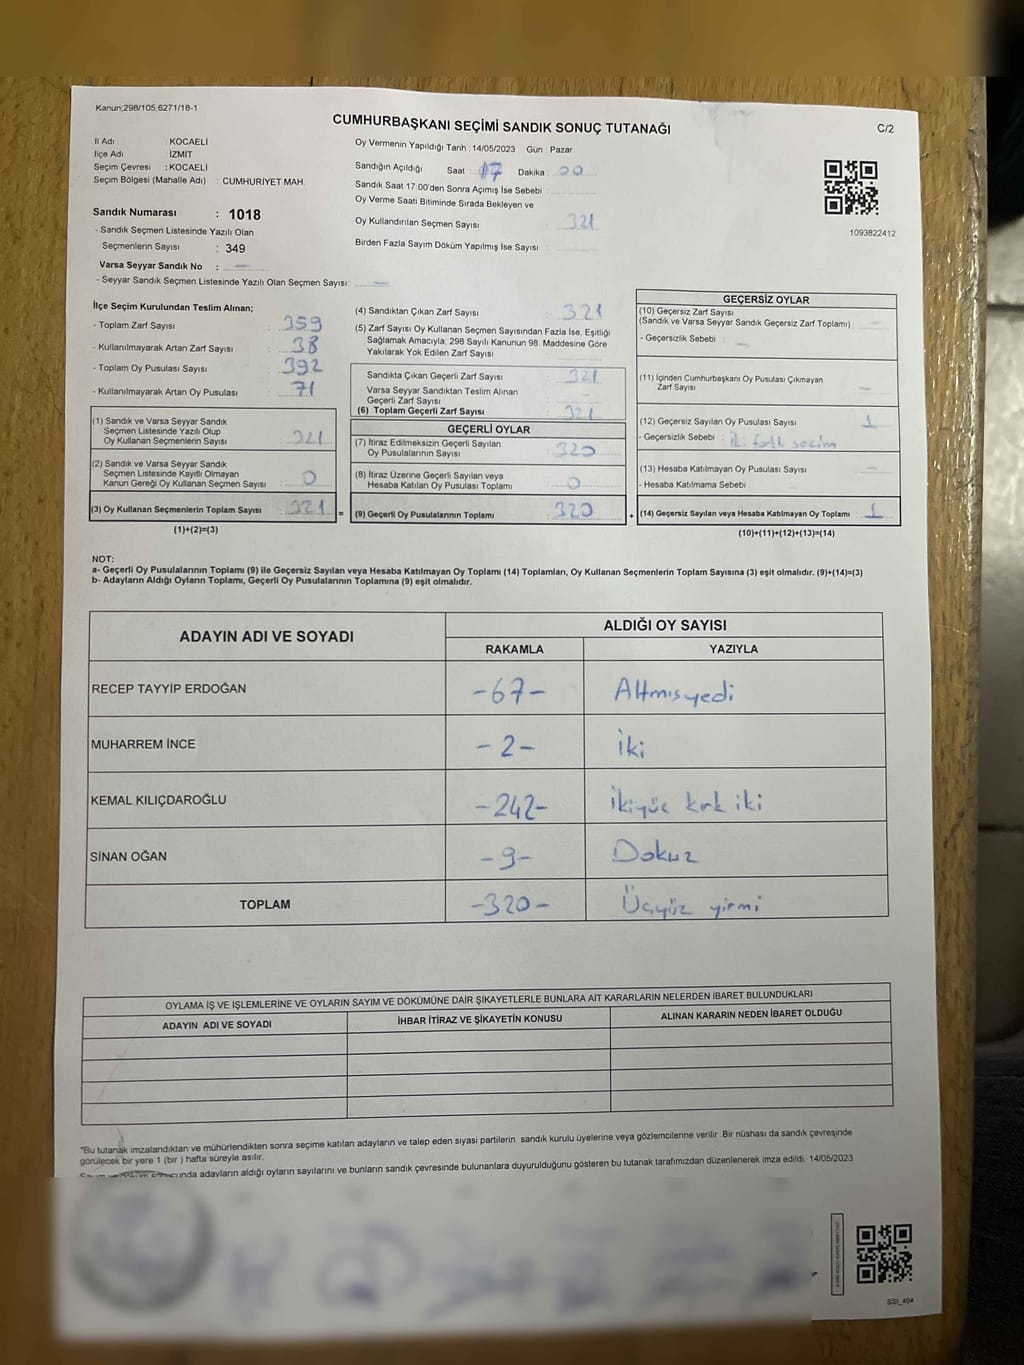 Kanun;298/105;6271/18-1
CUMHURBAŞKANI SEÇİMİ SANDIK SONUÇ TUTANAĞI
C/2
İl Adı : KOCAELİ
İlçe Adı İZMİT
Seçim Çevresi : KOCAELİ
Seçim Bölgesi (Mahalle Adı) : CUMHURİYET MAH.
Sandık Numarası : 1018
- Sandık Seçmen Listesinde Yazılı Olan
Seçmenlerin Sayısı : 349
Varsa Seyyar Sandık No : —
- Seyyar Sandık Seçmen Listesinde Yazılı Olan Seçmen Sayısı: —
Oy Vermenin Yapıldığı Tarih : 14/05/2023 Gün : Pazar
Sandığın Açıldığı Saat : 17 Dakika : 00
Sandık Saat 17:00'den Sonra Açımış İse Sebebi :
Oy Verme Saati Bitiminde Sırada Bekleyen ve
Oy Kullandırılan Seçmen Sayısı : 321
Birden Fazla Sayım Döküm Yapılmış İse Sayısı :
1093822412
İlçe Seçim Kurulundan Teslim Alınan;
- Toplam Zarf Sayısı : 359
- Kullanılmayarak Artan Zarf Sayısı : 38
- Toplam Oy Pusulası Sayısı : 392
- Kullanılmayarak Artan Oy Pusulası : 71
(1) Sandık ve Varsa Seyyar Sandık
Seçmen Listesinde Yazılı Olup
Oy Kullanan Seçmenlerin Sayısı : 321
(2) Sandık ve Varsa Seyyar Sandık
Seçmen Listesinde Kayıtlı Olmayan
Kanun Gereği Oy Kullanan Seçmen Sayısı : 0
(3) Oy Kullanan Seçmenlerin Toplam Sayısı : 321
(1)+(2)=(3)
(4) Sandıktan Çıkan Zarf Sayısı : 321
(5) Zarf Sayısı Oy Kullanan Seçmen Sayısından Fazla İse, Eşitliği
Sağlamak Amacıyla, 298 Sayılı Kanunun 98. Maddesine Göre
Yakılarak Yok Edilen Zarf Sayısı :
Sandıkta Çıkan Geçerli Zarf Sayısı : 321
Varsa Seyyar Sandıktan Teslim Alınan
Geçerli Zarf Sayısı : —
(6) Toplam Geçerli Zarf Sayısı : 321
GEÇERLİ OYLAR
(7) İtiraz Edilmeksizin Geçerli Sayılan
Oy Pusulalarının Sayısı : 320
(8) İtiraz Üzerine Geçerli Sayılan veya
Hesaba Katılan Oy Pusulası Toplamı : 0
= (9) Geçerli Oy Pusulalarının Toplamı : 320
GEÇERSİZ OYLAR
(10) Geçersiz Zarf Sayısı
(Sandık ve Varsa Seyyar Sandık Geçersiz Zarf Toplamı) : —
- Geçersizlik Sebebi : —
(11) İçinden Cumhurbaşkanı Oy Pusulası Çıkmayan
Zarf Sayısı : —
(12) Geçersiz Sayılan Oy Pusulası Sayısı : 1
- Geçersizlik Sebebi : seçim
(13) Hesaba Katılmayan Oy Pusulası Sayısı : —
- Hesaba Katılmama Sebebi :
+ (14) Geçersiz Sayılan veya Hesaba Katılmayan Oy Toplamı : 1
(10)+(11)+(12)+(13)=(14)
NOT:
a- Geçerli Oy Pusulalarının Toplamı (9) ile Geçersiz Sayılan veya Hesaba Katılmayan Oy Toplamı (14) Toplamları, Oy Kullanan Seçmenlerin Toplam Sayısına (3) eşit olmalıdır. (9)+(14)=(3)
b- Adayların Aldığı Oyların Toplamı, Geçerli Oy Pusulalarının Toplamına (9) eşit olmalıdır.
ADAYIN ADI VE SOYADI
ALDIĞI OY SAYISI
RAKAMLA YAZIYLA
RECEP TAYYİP ERDOĞAN -67- Altmışyedi
MUHARREM İNCE -2- İki
KEMAL KILIÇDAROĞLU -242- İkiyüz kırk iki
SİNAN OĞAN -9- Dokuz
TOPLAM -320- Üçyüz yirmi
OYLAMA İŞ VE İŞLEMLERİNE VE OYLARIN SAYIM VE DÖKÜMÜNE DAİR ŞİKAYETLERLE BUNLARA AİT KARARLARIN NELERDEN İBARET BULUNDUKLARI
ADAYIN ADI VE SOYADI İHBAR İTİRAZ VE ŞİKAYETİN KONUSU ALINAN KARARIN NEDEN İBARET OLDUĞU
*Bu tutanak imzalandıktan ve mühürlendikten sonra seçime katılan adayların ve talep eden siyasi partilerin sandık kurulu üyelerine veya gözlemcilerine verilir. Bir nüshası da sandık çevresinde
görülecek bir yere 1 (bir ) hafta süreyle asılır.
adayların aldığı oyların sayılarını ve bunların sandık çevresinde bulunanlara duyurulduğunu gösteren bu tutanak tarafımızdan düzenlenerek imza edildi. 14/05/2023
SSİ_404